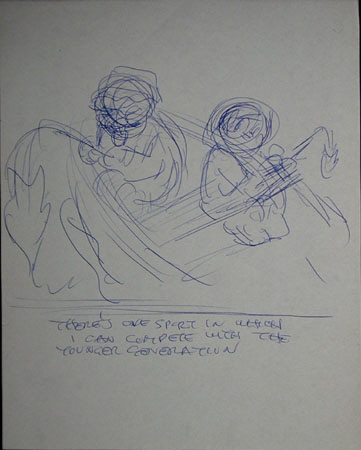 THERE'S ONE SPORT IN WHICH
I CAN COMPETE WITH THE
YOUNGER GENERATION